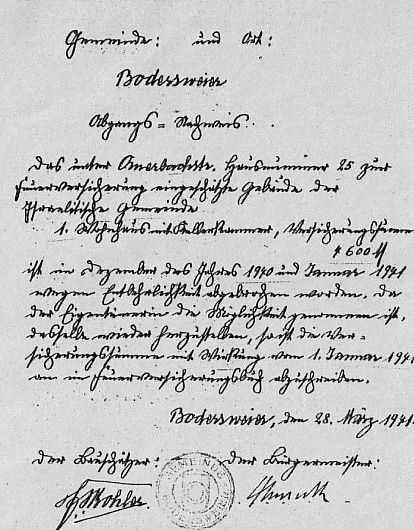 Gemeinde: und Ort:
Bodersweier
Abgangs = Nachweis.
Das unter Querbacherstr. Hausnummer 25 zur
Feuerversicherung eingeschätzte Gebäude der
Israelitische Gemeinde
1. Wohnhaus mit Kellerkammer, Versicherungssumme
4600 M
ist im Dezember des Jahres 1940 und Januar 1941
wegen Entbehrlichkeit abgebrochen worden. Da
der Eigentümerin die Möglichkeit genommen ist,
dasselbe wieder herzustellen, ist die Ver-
sicherungssumme mit Wirkung vom 1. Januar 1941
an im Feuerversicherungsbuch abzuschreiben.
Bodersweier, den 28. März 1941.
Der Bauschätzer: Der Bürgermeister:
GEMEINDE